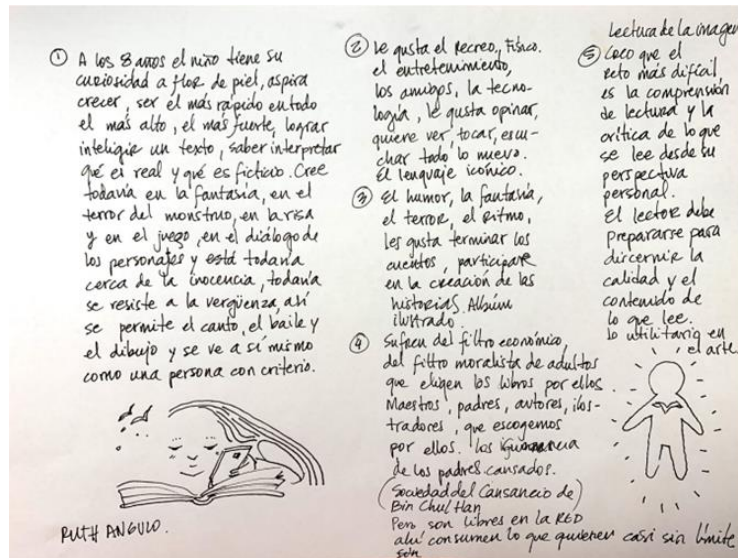 ① A los 8 años el niño tiene su
curiosidad a flor de piel, aspira
crecer, ser el más rápido en todo
el más alto, el más fuerte, lograr
inteligir un texto, saber interpretar
qué es real y qué es ficticio. Cree
todavía en la fantasía, en el
terror del monstruo, en la risa
y en el juego, en el diálogo de
los personajes y está todavía
cerca de la inocencia, todavía
se resiste a la vergüenza, ahí
se permite el canto, el baile y
el dibujo y se ve a sí mismo
como una persona con criterio.
RUTH ANGULO.
② Le gusta el Recreo, Físico.
el entretenimiento,
los amigos, la tecno-
logía, le gusta opinar,
quiere ver, tocar, escu-
char todo lo nuevo.
El lenguaje icónico.
③ El humor, la fantasía,
el terror, el ritmo,
les gusta terminar los
cuentos, participar
en la creación de las
historias. Album
ilustrado.
④ Sufren del filtro económico,
del filtro moralista de adultos
que eligen los libros por ellos
Maestros, padres, autores, ilus-
tradores, que escogemos
por ellos. Los
de los padres cansados.
(Sociedad del Cansancio de)
Bin Chul Han
Pero son libres en la RED
ahí consumen lo que quieren casi sin límite
son
Lectura de la imagen
⑤ Creo que el
reto más difícil,
es la comprensión
de lectura y la
crítica de lo que
se lee desde su
perspectiva
personal.
El lector debe
prepararse para
dircernir la
calidad y el
contenido de
lo que lee.
Lo utilitario en
el arte.